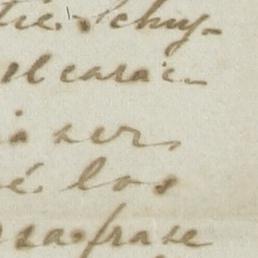 tre Schu-
el carác-
a ser
é los
esa frase